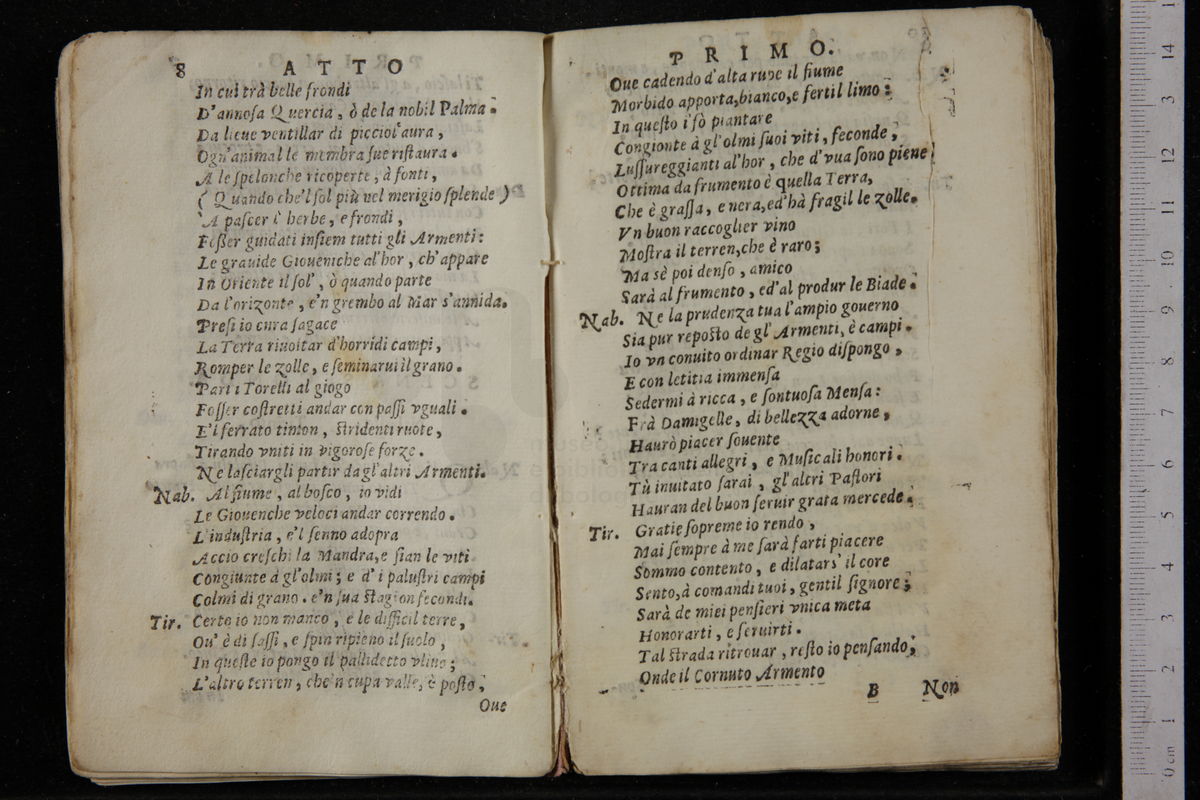 8 ATTO
In cui trà belle frondi
D'annoſa Quercia, ò de la nobil Palma.
Da lieue ventillar di picciol'aura,
Ogn'animal le membra ſue riſtaura.
A le ſpelonche ricoperte, à fonti,
(Quando che'l ſol più nel merigio ſplende)
A paſcer l' herbe, e frondi,
Foſſer guidati inſiem tutti gli Armenti:
Le grauide Gioueniche al'hor, ch'appare
In Oriente il ſol', ò quando parte
Da l'orizonte, e'n grembo al Mar s'annida.
Preſi io cura ſagace
La Terra riuoltar d'horridi campi,
Romper le zolle, e ſeminarui il grano.
Pari i Torelli al giogo
Foſſer coſtretti andar con paſſi vguali.
E'l ferrato timon, ſtridenti ruote,
Tirando vniti in vigoroſe forze.
Ne laſciargli partir da gl'altri Armenti.
Nab. Al fiume, al boſco, io vidi
Le Giouenche veloci andar correndo.
L'induſtria, e'l ſenno adopra
Acciò creſchi la Mandra, e ſian le viti
Congiunte à gl'olmi; e d' i paluſtri campi
Colmi di grano. e'n ſua ſtagion fecondi.
Tir. Certo io non manco, e le difficil terre,
Ou' è di ſaſſi, e ſpin ripieno il ſuolo,
In queſte io pongo il pallidetto vliuo;
L'altro terren, che'n cupa valle, è poſto,
Oue
PRIMO.
Oue cadendo d'alta rupe il fiume
Morbido apporta, bianco, e fertil limo:
In queſto i fò piantare
Congionte à gl'olmi ſuoi viti, feconde,
Luſſureggianti al'hor, che d'vua ſono piene;
Ottima da frumento è quella Terra,
Che è graſſa, e nera, ed'hà fragil le zolle.
Vn buon raccoglier vino
Moſtra il terren, che è raro;
Ma sè poi denſo, amico
Sarà al frumento, ed'al produr le Biade.
Nab. Ne la prudenza tua l'ampio gouerno
Sia pur repoſto de gl' Armenti, è campi.
Io vn conuito ordinar Regio diſpongo,
E con letitia immenſa
Sedermi à ricca, e ſontuoſa Menſa:
Frà Damigelle, di bellezza adorne,
Haurò piacer ſouente
Tra canti allegri, e Muſicali honori.
Tù inuitato ſarai, gl'altri Paſtori
Hauran del buon ſeruir grata mercede.
Tir. Gratie ſopreme io rendo,
Mai ſempre à me ſarà farti piacere
Sommo contento, e dilatars' il core
Sento, à comandi tuoi, gentil ſignore;
Sarà de miei penſieri vnica meta
Honorarti, e ſeruirti.
Tal ſtrada ritrouar, reſto io penſando,
Onde il Cornuto Armento
B Non